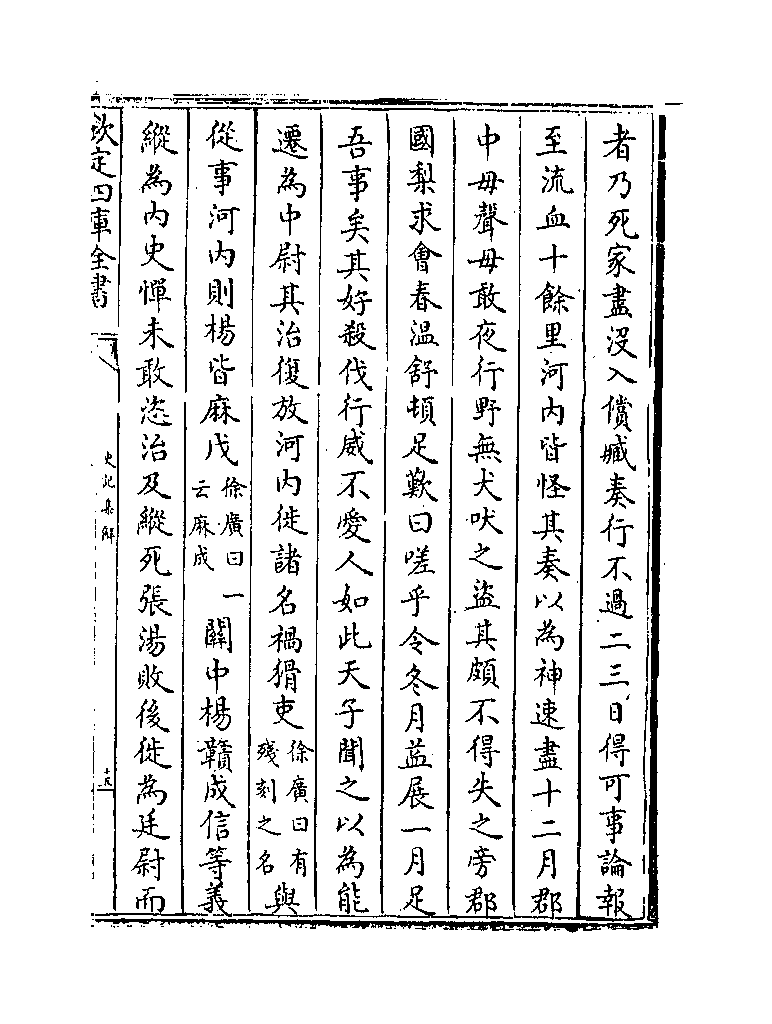 者乃死家盡没入償臧奏行不過二三日得可事論報
至流血十餘里河内皆怪其奏以為神速盡十二月郡
中毋聲毋敢夜行野無犬吠之盜其頗不得失之旁郡
國梨求會春温舒頓足歎曰嗟乎令冬月益展一月足
吾事矣其好殺伐行威不愛人如此天子聞之以為能
遷為中尉其治復放河内徙諸名禍猾吏徐廣曰有殘刻之名與
從事河内則楊皆麻戊徐廣曰一云麻成關中楊贛成信等義
縱為内史憚未敢恣治及縱死張湯敗後徙為廷尉而
欽定四庫全書
史記集解